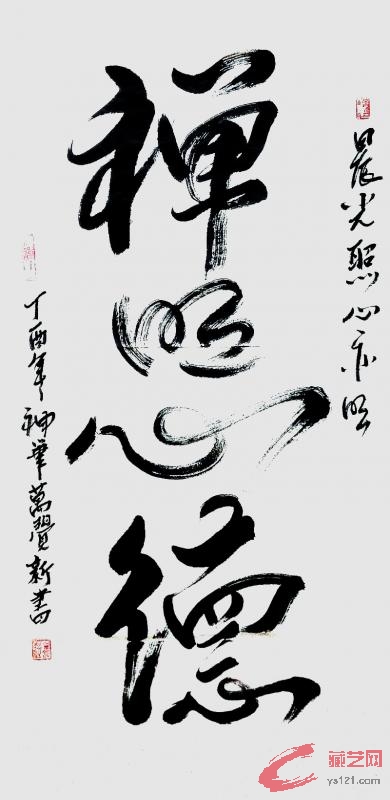 晨光照心亦明
禪明心德
丁酉年神筆萬新書
藏艺网
ys121.com